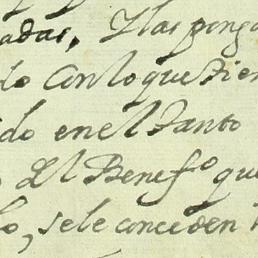 adas, Y las ponga
do Con lo que tien
ido en el tanto
El Benef.o que
lo, se le conceden